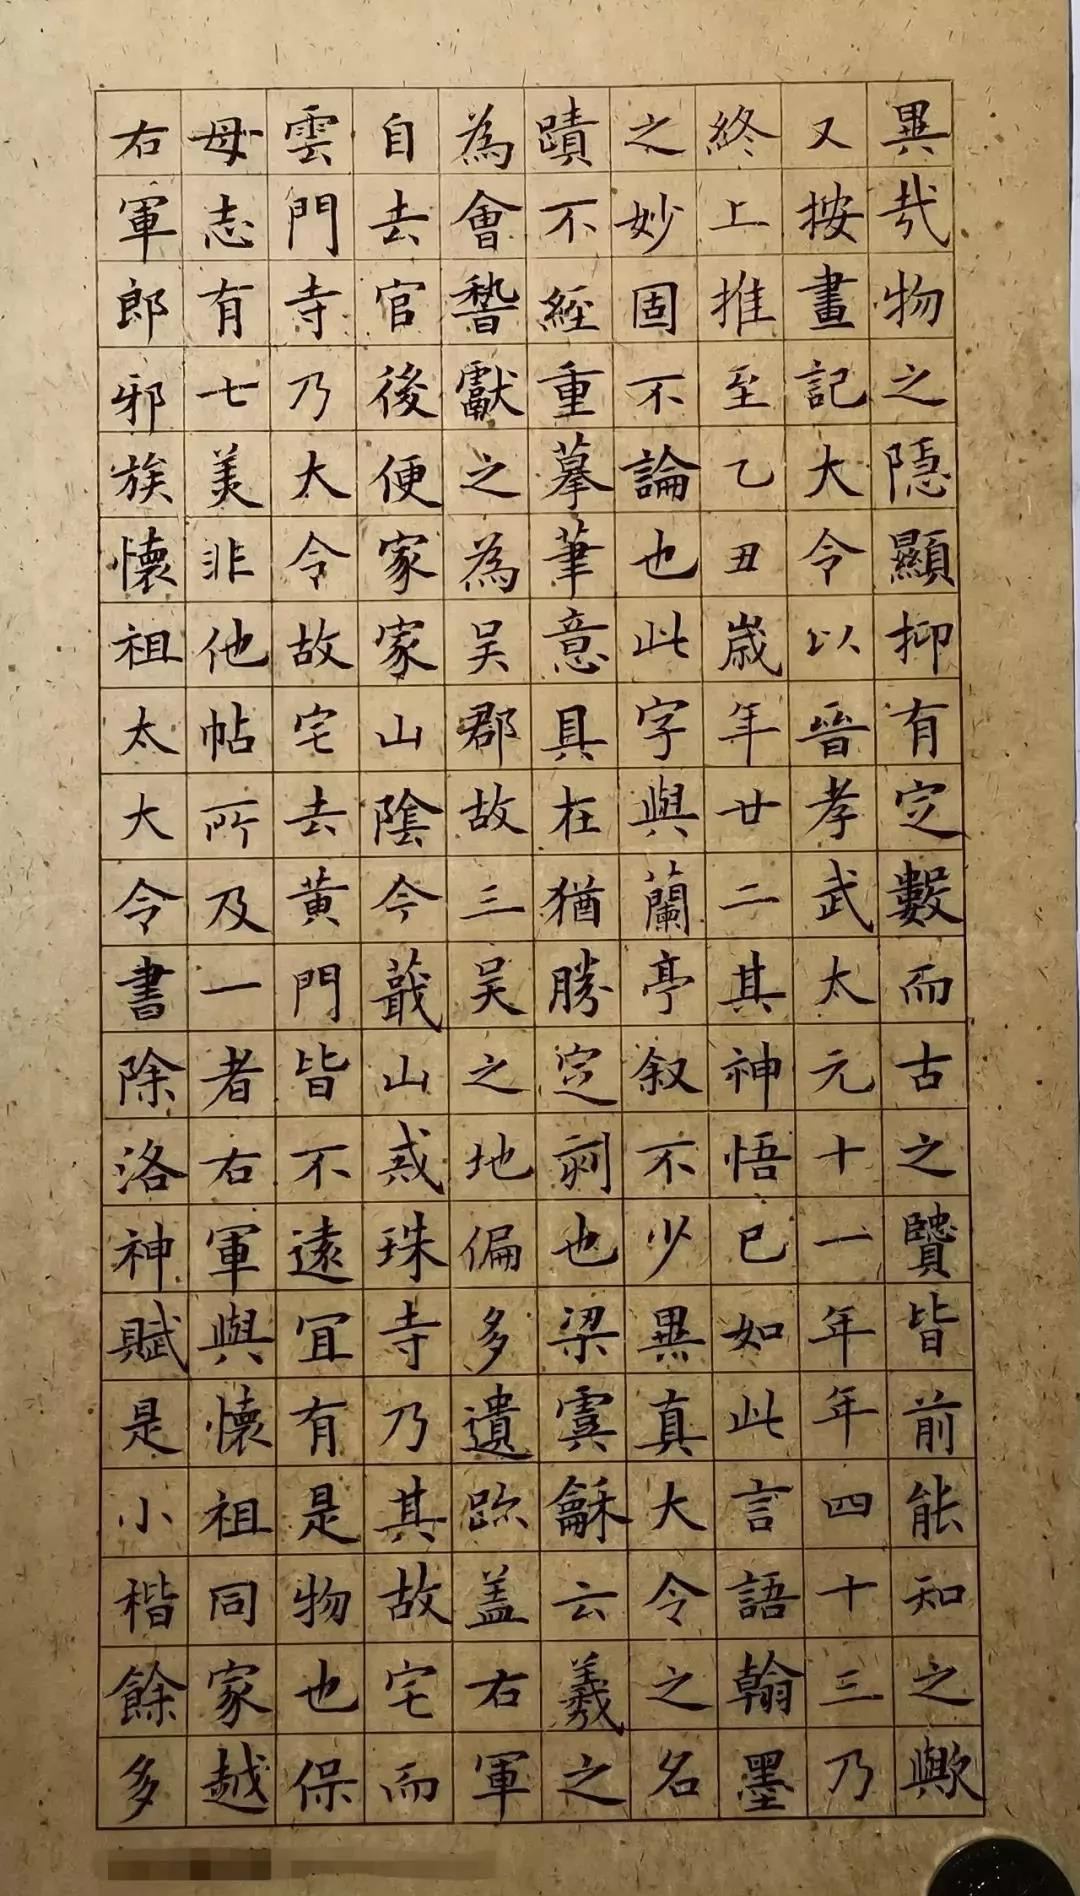 異哉物之隱顯抑有定數而古之賢皆前能知之歟
又按畫記大令以晉孝武太元十一年年四十三乃
終上推至乙丑歲年廿二其神悟已如此言語翰墨
之妙固不論也此字與蘭亭叙不少異真大令之名
蹟不經重摹筆意具在猶勝定刻也梁虞龢云羲之
為會稽獻之為吴郡故三吴之地偏多遺跡盖右軍
自去官後便家家山陰今蕺山戒珠寺乃其故宅而
雲門寺乃大令故宅去黄門皆不遠宜有是物也保
母志有七美非他帖所及一者右軍與懷祖同家越
右軍郎邪族懷祖太大令書除洛神賦是小楷餘多